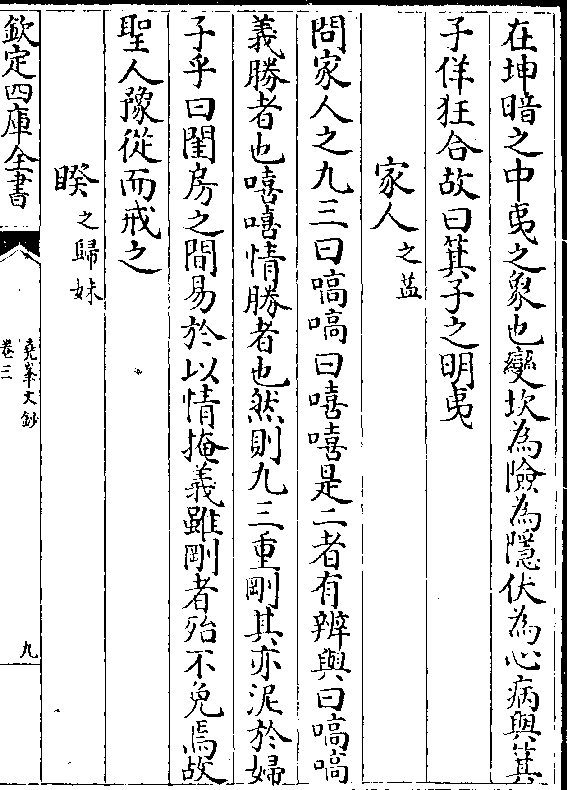 在坤暗之中夷之象也變坎為險為隱伏為心病與箕
子佯狂合故曰箕子之明夷
家人之益
問家人之九三曰嗃嗃曰嘻嘻是二者有辨與曰嗃嗃
義勝者也嘻嘻情勝者也然則九三重剛其亦泥於婦
子乎曰閨房之間易於以情掩義雖剛者殆不免焉故
聖人豫從而戒之
睽之歸妹
欽定四庫全書
堯峯文鈔
卷三
九